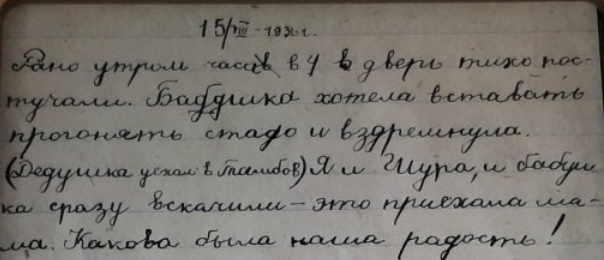 15/VIII-1936 г.
Рано утром часов в 4 в дверь тихо пос-
тучали. Бабушка хотела вставать
прогонять стадо и вздремнула.
(Дедушка уехал в Тамбов) Я и Шура, и бабуш
ка сразу вскачили – это приехала ма-
ма. Какова была наша радость!